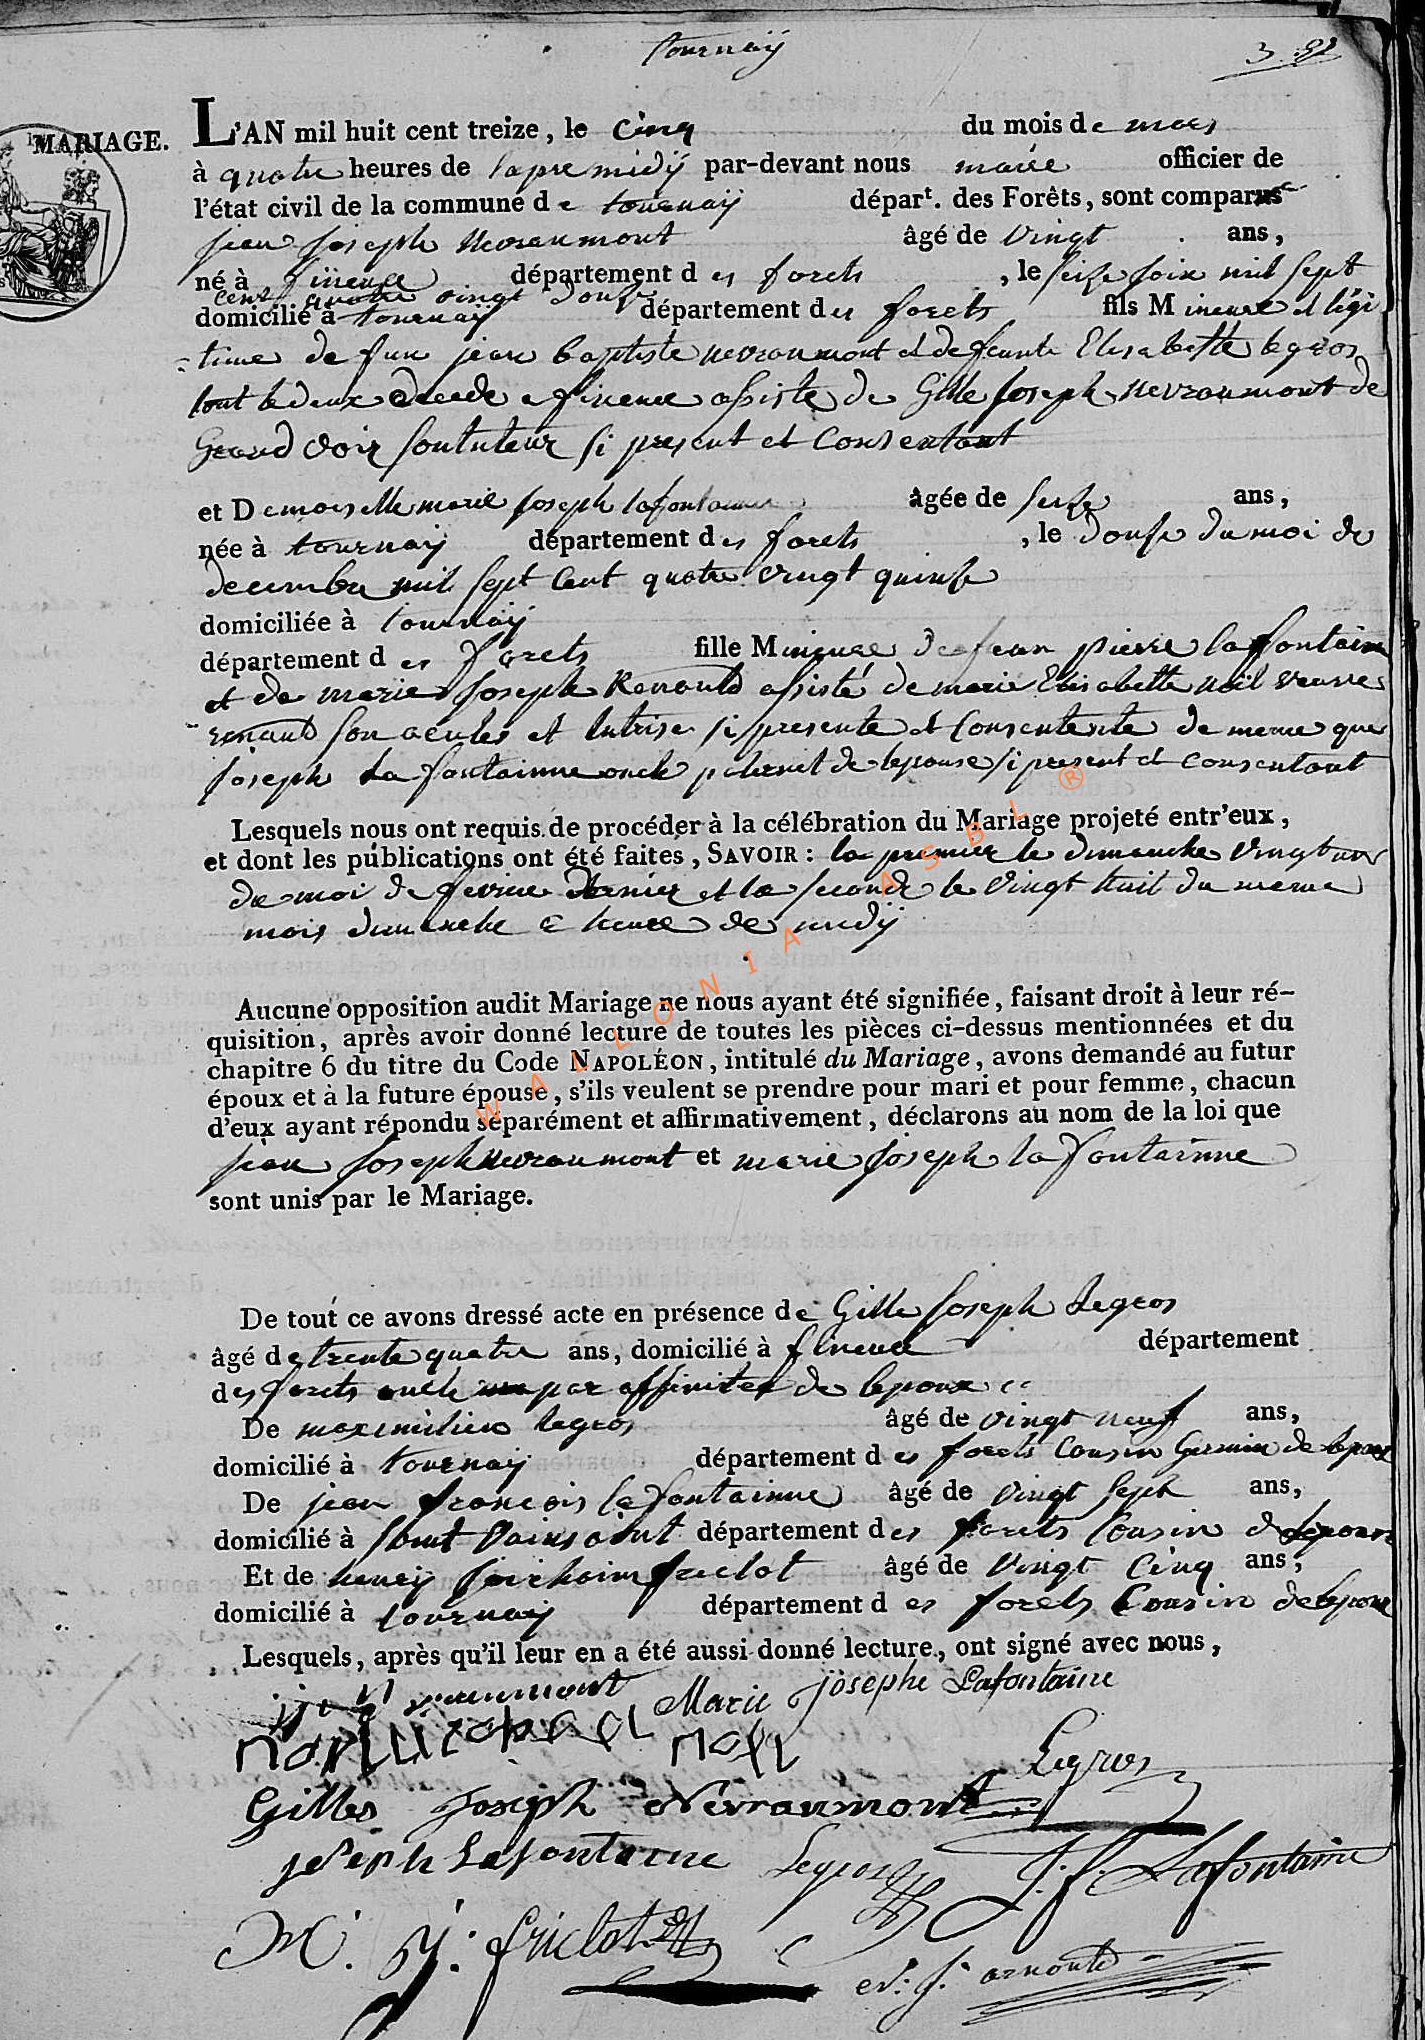 tournaÿ
MARIAGE.
L'AN mil huit cent treize, le cinq du mois de mars
à quatre heures de lapremidÿ par-devant nous maire officier de
l'état civil de la commune de tournaÿ départ. des Forêts, sont comparus
jean joseph nevraumont âgé de vingt ans,
né à fineuse département des forets, le seize foix mil sept
cent quatre vingt douze
domicilié à tournaÿ département des forets fils Mineure et légi
time de fun jean baptiste nevraumont et defeunte Elisabette legros
tout ledeux assiste de Gille Joseph nevraumont de
Grand voir son tuteur si present et consentant
et Demoiselle marie Joseph lafontainne âgée de seize ans,
née à tournaÿ département des forets, le douse du moi de
decembre mil sept cent quatre vingt quinse
domiciliée à tournaÿ
département des forets fille Mineure de jean pierre lafontainne
et de marie Joseph Renauld assisté de marie Elisabette noël veuve
renauld son aeules et tutrise si presente et consentente de meme que
Joseph La fontainne oncle paternel de lepouse si present et consentant
Lesquels nous ont requis de procéder à la célébration du Mariage projeté entr'eux,
et dont les publications ont été faites, SAVOIR : la premier le dimanche vingt un
du moi de fevrier dernier et la seconde le vingt huit du meme
mois dimenche a heure de midÿ
Aucune opposition audit Mariage ne nous ayant été signifiée, faisant droit à leur ré-
quisition, après avoir donné lecture de toutes les pièces ci-dessus mentionnées et du
chapitre 6 du titre du Code NAPOLÉON, intitulé du Mariage, avons demandé au futur
époux et à la future épouse, s'ils veulent se prendre pour mari et pour femme, chacun
d'eux ayant répondu séparément et affirmativement, déclarons au nom de la loi que
jean Joseph nevraumont et marie Joseph la fontainne
sont unis par le Mariage.
De tout ce avons dressé acte en présence de Gille Joseph Legros
âgé de trente quatre ans, domicilié à département
des forets oncle par affinitez de lepoux
De maximilien legros âgé de vingt neuf ans,
domicilié à tournaÿ département des forets Cousin Germain de lepoux
De jean francois lafontainne âgé de vingt sept ans,
domicilié à département des forets Cousin de lepouse
Et de henrÿ friclot âgé de vingt cinq ans,
domicilié à tournaÿ département des forets Cousin de lepouse
Lesquels, après qu'il leur en a été aussi donné lecture, ont signé avec nous,
nevraumont Marie josephe Lafontaine
noel
Legros
Gilles Joseph Nevraumont
joseph Lafontaine Legros J. f. Lafontaine
friclot
arnould
WALLONIA ASBL ®